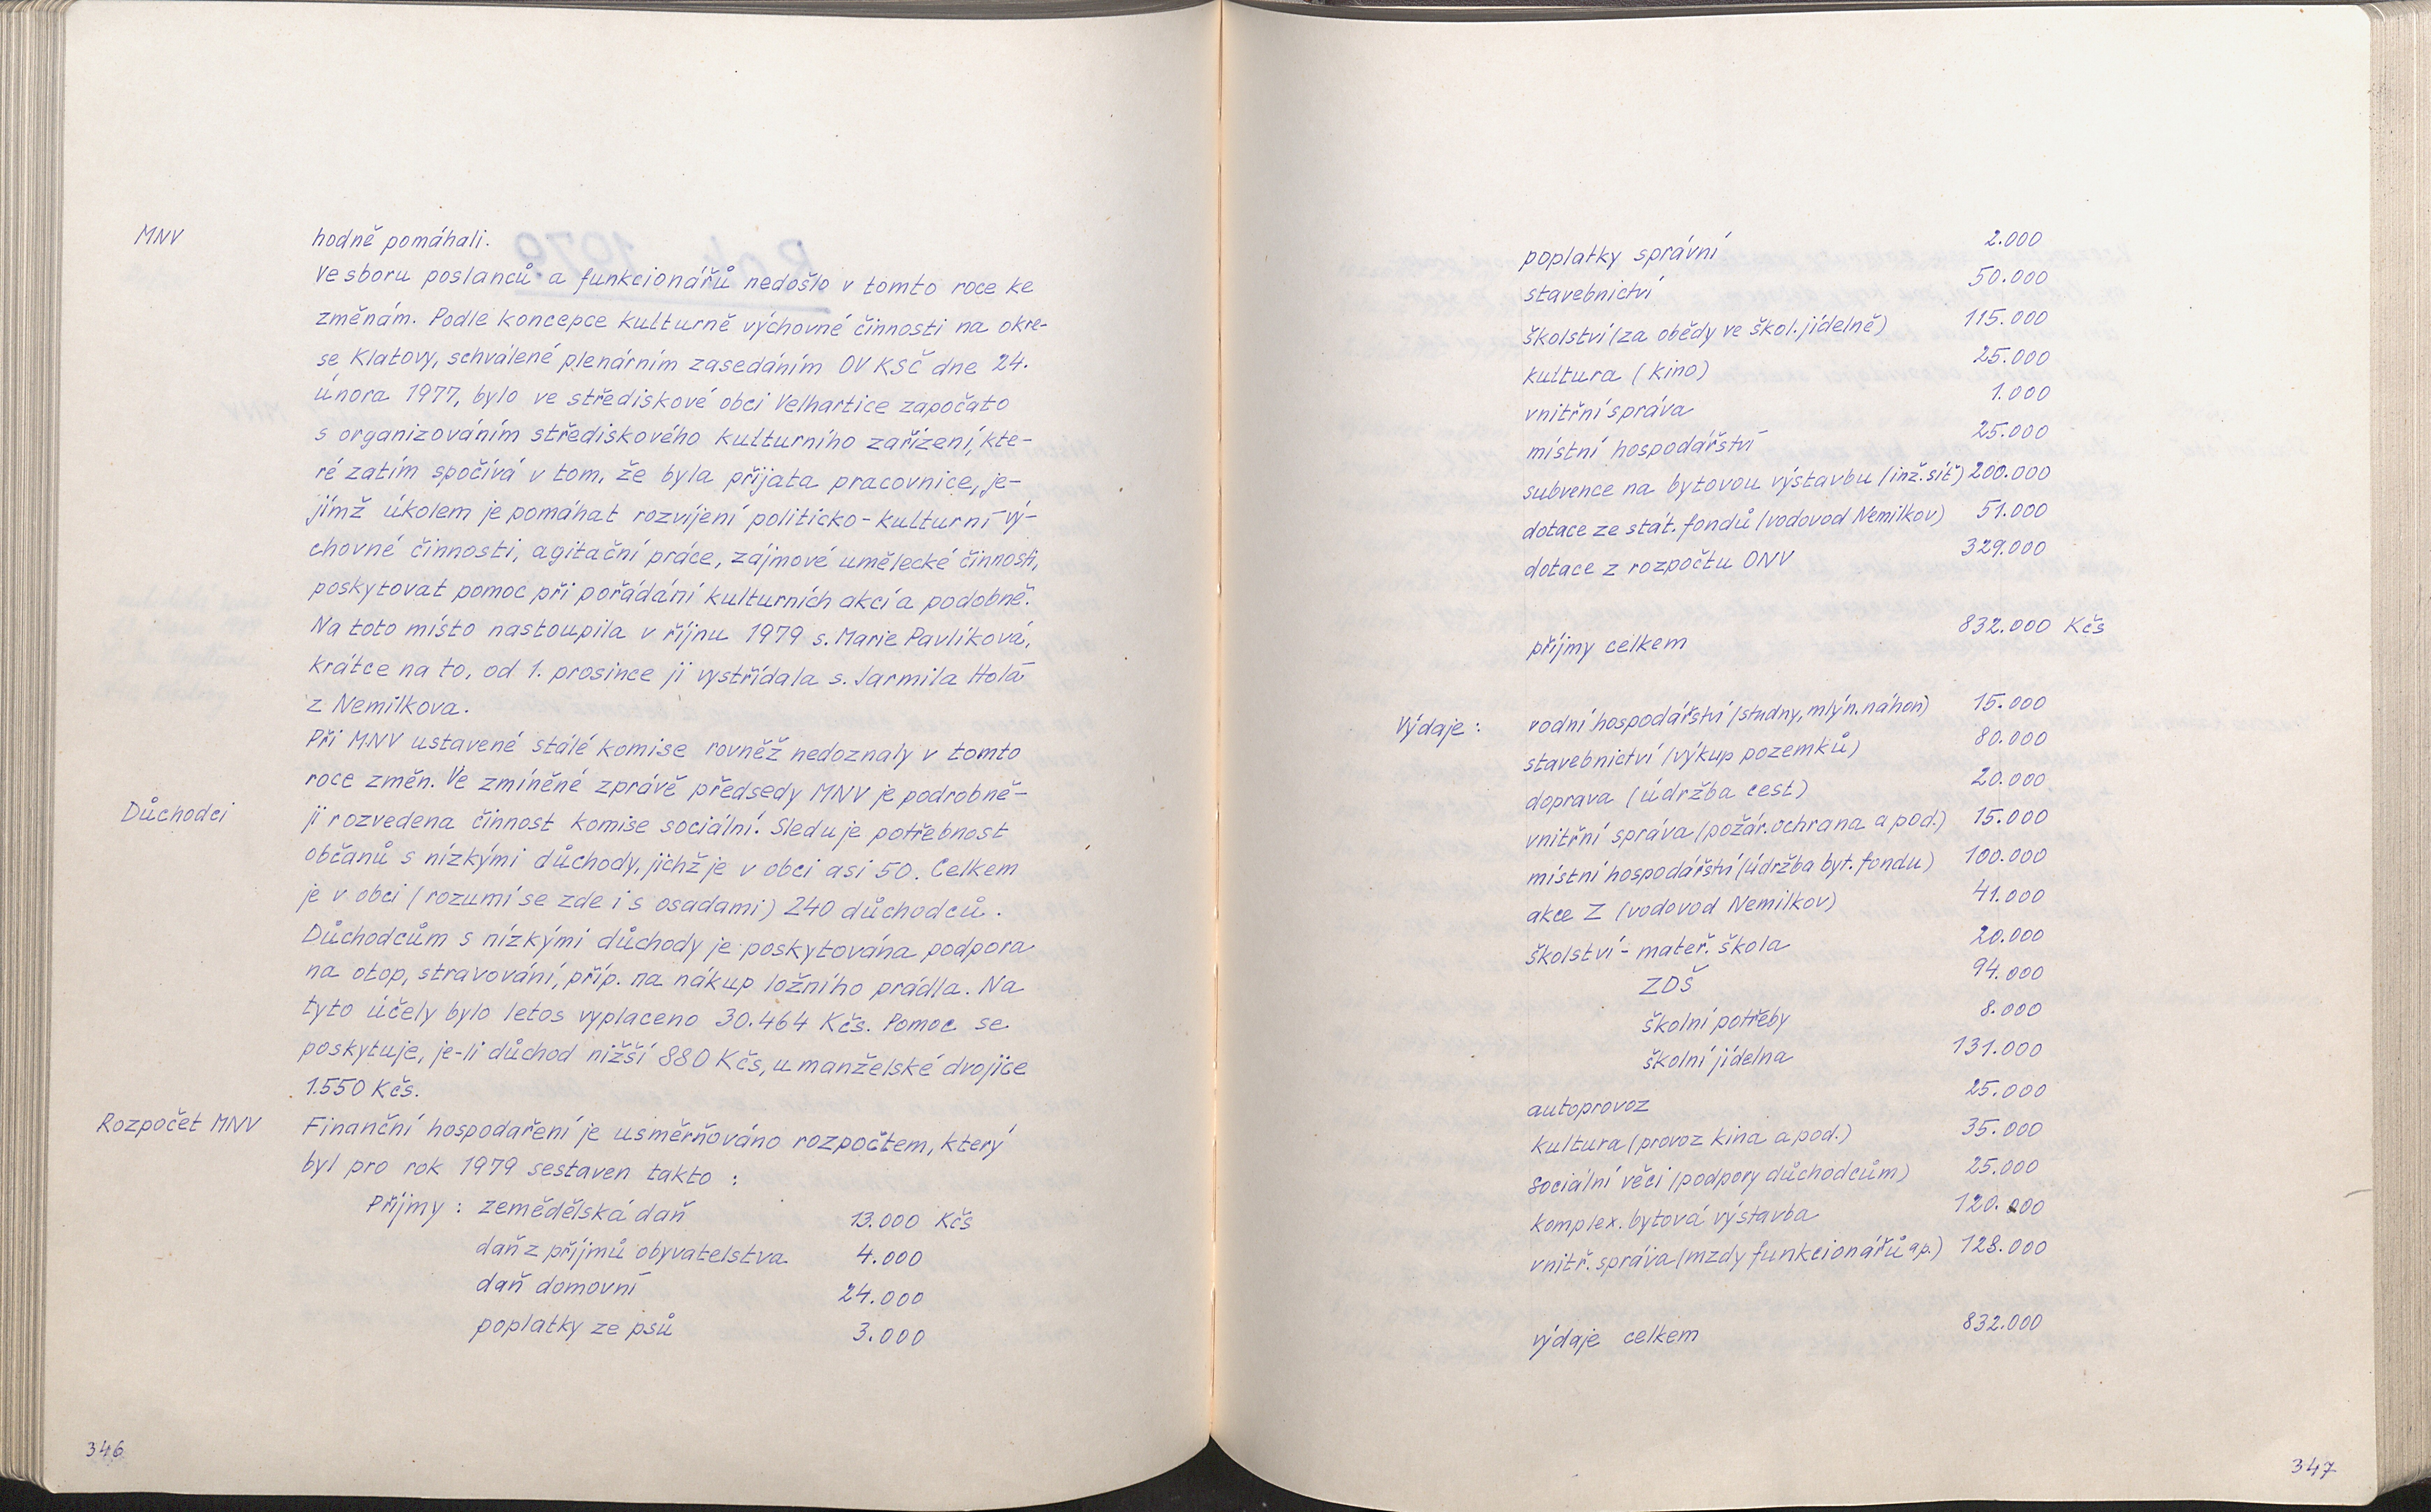 MNV
hodně pomáhali.
Ve sboru poslanců a funkcionářů nedošlo v tomto roce ke
změnám. Podle koncepce kulturně výchovné činnosti na okre-
se Klatovy, schválené plenárním zasedáním OV KSČ dne 24.
února 1977, bylo ve střediskové obci Velhartice započato
s organizováním střediskového kulturního zařízení, kte-
ré zatím spočívá v tom, že byla přijata pracovnice, je-
jímž úkolem je pomáhat rozvíjení politicko-kulturní vý-
chovné činnosti, agitační práce, zájmové umělecké činnosti,
poskytovat pomoc při pořádání kulturních akcí a podobně.
Na toto místo nastoupila v říjnu 1979 s. Marie Pavlíková,
krátce na to, od 1. prosince ji vystřídala s. Jarmila Holá
z Nemilkova.
Při MNV ustavené stálé komise rovněž nedoznaly v tomto
roce změn. Ve zmíněné zprávě předsedy MNV je podrobně-
Důchodci
ji rozvedena činnost komise sociální. Sleduje potřebnost
občanů s nízkými důchody, jichž je v obci asi 50. Celkem
je v obci (rozumí se zde i s osadami) 240 důchodců.
Důchodcům s nízkými důchody je poskytována podpora
na otop, stravování, příp. na nákup ložního prádla. Na
tyto účely bylo letos vyplaceno 30.464 Kčs. Pomoc se
poskytuje, je-li důchod nižší 880 Kčs, u manželské dvojice
1.550 Kčs.
Rozpočet MNV
Finanční hospodaření je usměrňováno rozpočtem, který
byl pro rok 1979 sestaven takto :
Příjmy : zemědělská daň 13.000 Kčs
daň z příjmů obyvatelstva 4.000
daň domovní 24.000
poplatky ze psů 3.000
346
poplatky správní 2.000
stavebnictví 50.000
školství (za obědy ve škol. jídelně) 115.000
kultura (kino) 25.000
vnitřní správa 1.000
místní hospodářství 25.000
subvence na bytovou výstavbu (inž. síť) 200.000
dotace ze stát. fondů (vodovod Nemilkov) 51.000
dotace z rozpočtu ONV 329.000
příjmy celkem 832.000 Kčs
Výdaje : vodní hospodářství (studny, mlýn. náhon) 15.000
stavebnictví (výkup pozemků) 80.000
doprava (údržba cest) 20.000
vnitřní správa (požár. ochrana a pod.) 15.000
místní hospodářství (údržba byt. fondu) 100.000
akce Z (vodovod Nemilkov) 41.000
školství - mateř. škola 20.000
ZDŠ 94.000
školní potřeby 8.000
školní jídelna 131.000
autoprovoz 25.000
kultura (provoz kina a pod.) 35.000
sociální věci (podpory důchodcům) 25.000
komplex. bytová výstavba 120.000
vnitř. správa (mzdy funkcionářů ap.) 128.000
výdaje celkem 832.000
347